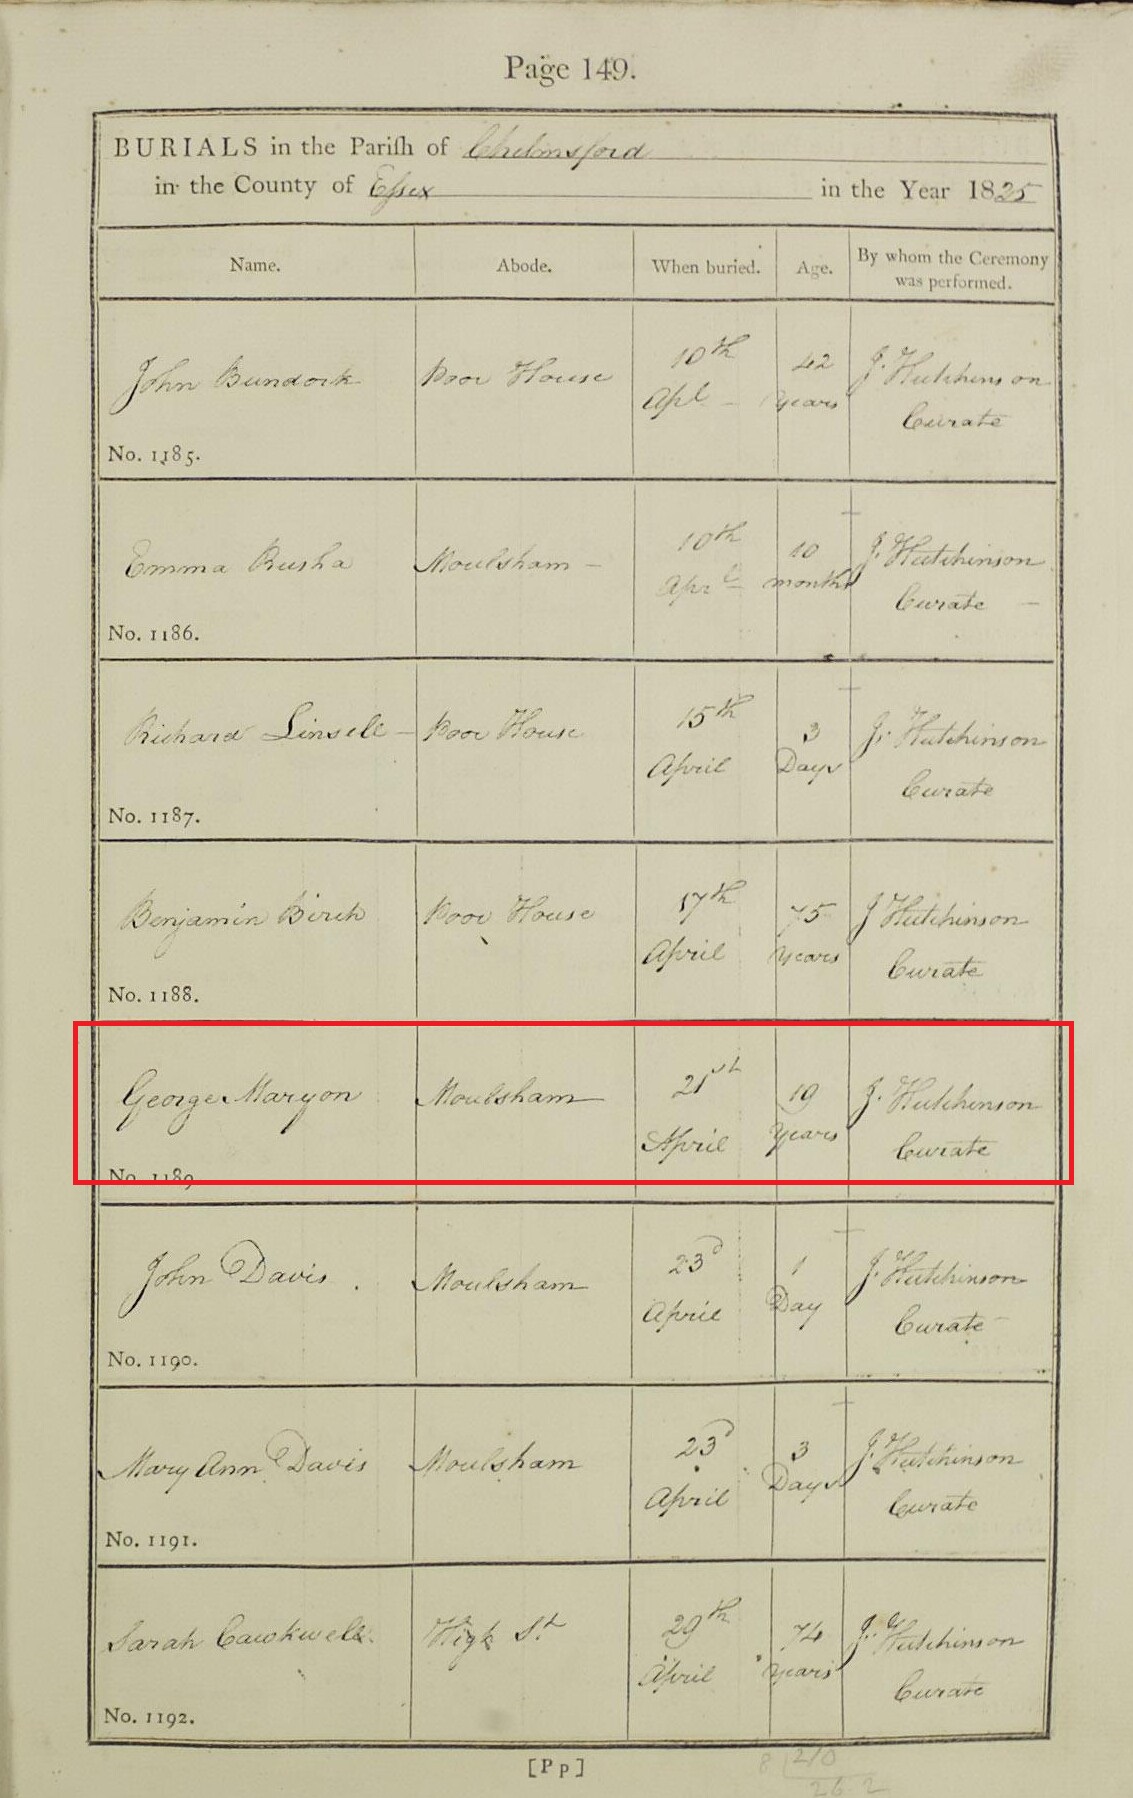 Page 149.
BURIALS in the Pariſh of Chelmsford
in the County of Eſsex in the Year 1825
Name. Abode. When buried. Age. By whom the Ceremony
was performed.
John Bundock Poor House 10th 42 J. Hutchinson
Apl Years Curate
No. 1185.
Emma Rusha Moulsham 10th 10 J. Hutchinson
Aprl months Curate
No. 1186.
Richard Linsell Poor House 15th 3 J. Hutchinson
April Days Curate
No. 1187.
Benjamin Birch Poor House 17th 75 J Hutchinson
April Years Curate
No. 1188.
George Maryon Moulsham 21st 19 J. Hutchinson
April Years Curate
No. 1189
John Davis Moulsham 23d 1 J. Hutchinson
April Day Curate
No. 1190.
Mary Ann Davis Moulsham 23d 3 J. Hutchinson
April Days Curate
No. 1191.
Sarah Cawkwell High St 29th 74 J. Hutchinson
April Years Curate
No. 1192.
[Pp] 8 210
26.2